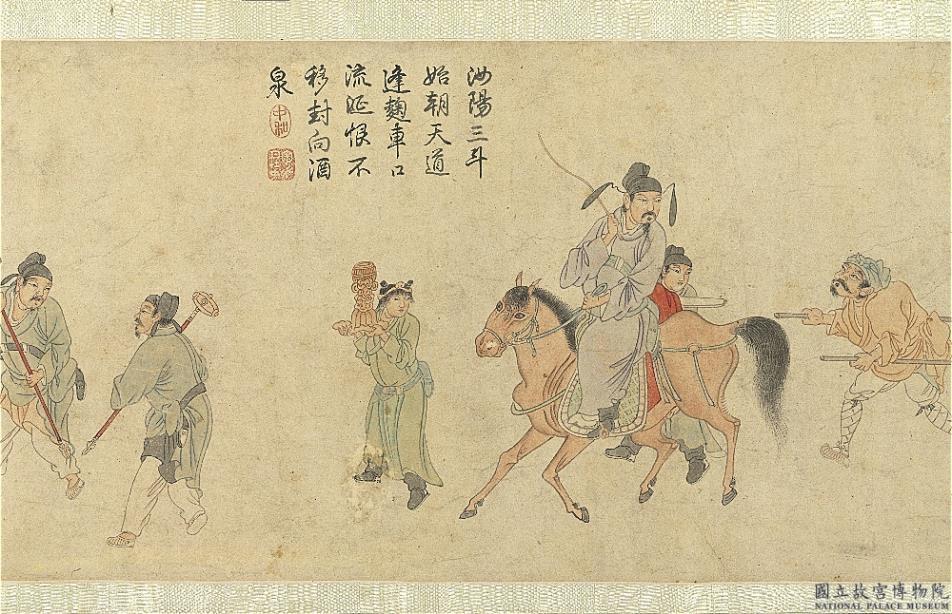 汝陽三斗
始朝天道
逢麹車口
流涎恨不
移封向酒
泉
中和
國立故宮博物院
NATIONAL PALACE MUSEUM